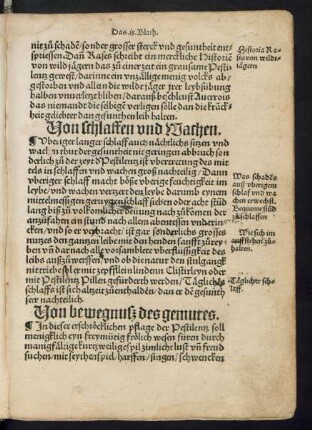 Das ix. Blath.
nit zu schadē/ sonder grosser sterck vnd gesuntheit ent-
spriessen. Daň Rases schreibt ein merckliche Historiē
von wild jägern das zu einer zeit ein grausame Pesti-
lentz gewest/ darinne ein vnzälligemenig volcks ab-
gestorben vnd allein die wildt jäger jrer leybsübung
halben vnuerletzt bliben/ darauß beschleüst Auerrois
das niemandt die selbige verligen solle dan die kräck-
heit geliebet dan gesuntheit leib halten.
Historia Ra-
sis von wildt-
jägern
Von schlaffen vnd Wachen.
Vberiger langer schlaff auch nächtliche sitzen vnd
wachen thut der gesuntheit nit geringen abbruch son
derlich zu der zeyt der Pestilentz ist vbertrettung des mit-
tels in schlaffen vnd wachen groß nachteilig/ Dann
vberiger schlaff macht böse vberige feüchtigkeit im
leybe/ vnd wachen verzert den leybe darumb eynem
mittelmessigen geruwigen schlaff siben oder acht stūd
lang biß zu volkomlicher deüung nach zukomen der
anzufahen ein stund nach allem abentessen vnd trin-
cken/ vnd so er verbracht/ ist gar sonderlichs grosses
nutzes den gantzen leibe mit den henden sanfft zu rey-
ben vň darnach alle vorsamblete vberflüssigkeit des
leibs auß zu werffen/ vnd ob die natur den stulgangk
nit triebe sol er mit zepfflein lindern Clistirleyn oder
mit Pestilentz Pillen gefürdert werden/ Täglichs
schlaffs ist sich alzeit zu enthalden/ dan er dē gesunth
seer nachteilich.
Was schadēs
auß vberigem
schlaf vnd wa
chen erwechst.
Bequeme stūd
zu schlaffen
Wie sich im
auffstehen zu-
halten.
Täglicher sch-
laff.
Von bewegnuß des gemütes.
In dieser erschöcklichen pflage der Pestilentz soll
menigklich eyn freymütig frölich wesen füren durch
manigfältige kurtzweilige spil zimlich lust vň freud
suchen/ mit seytenspiel/ harffen/ singen/ schwencken